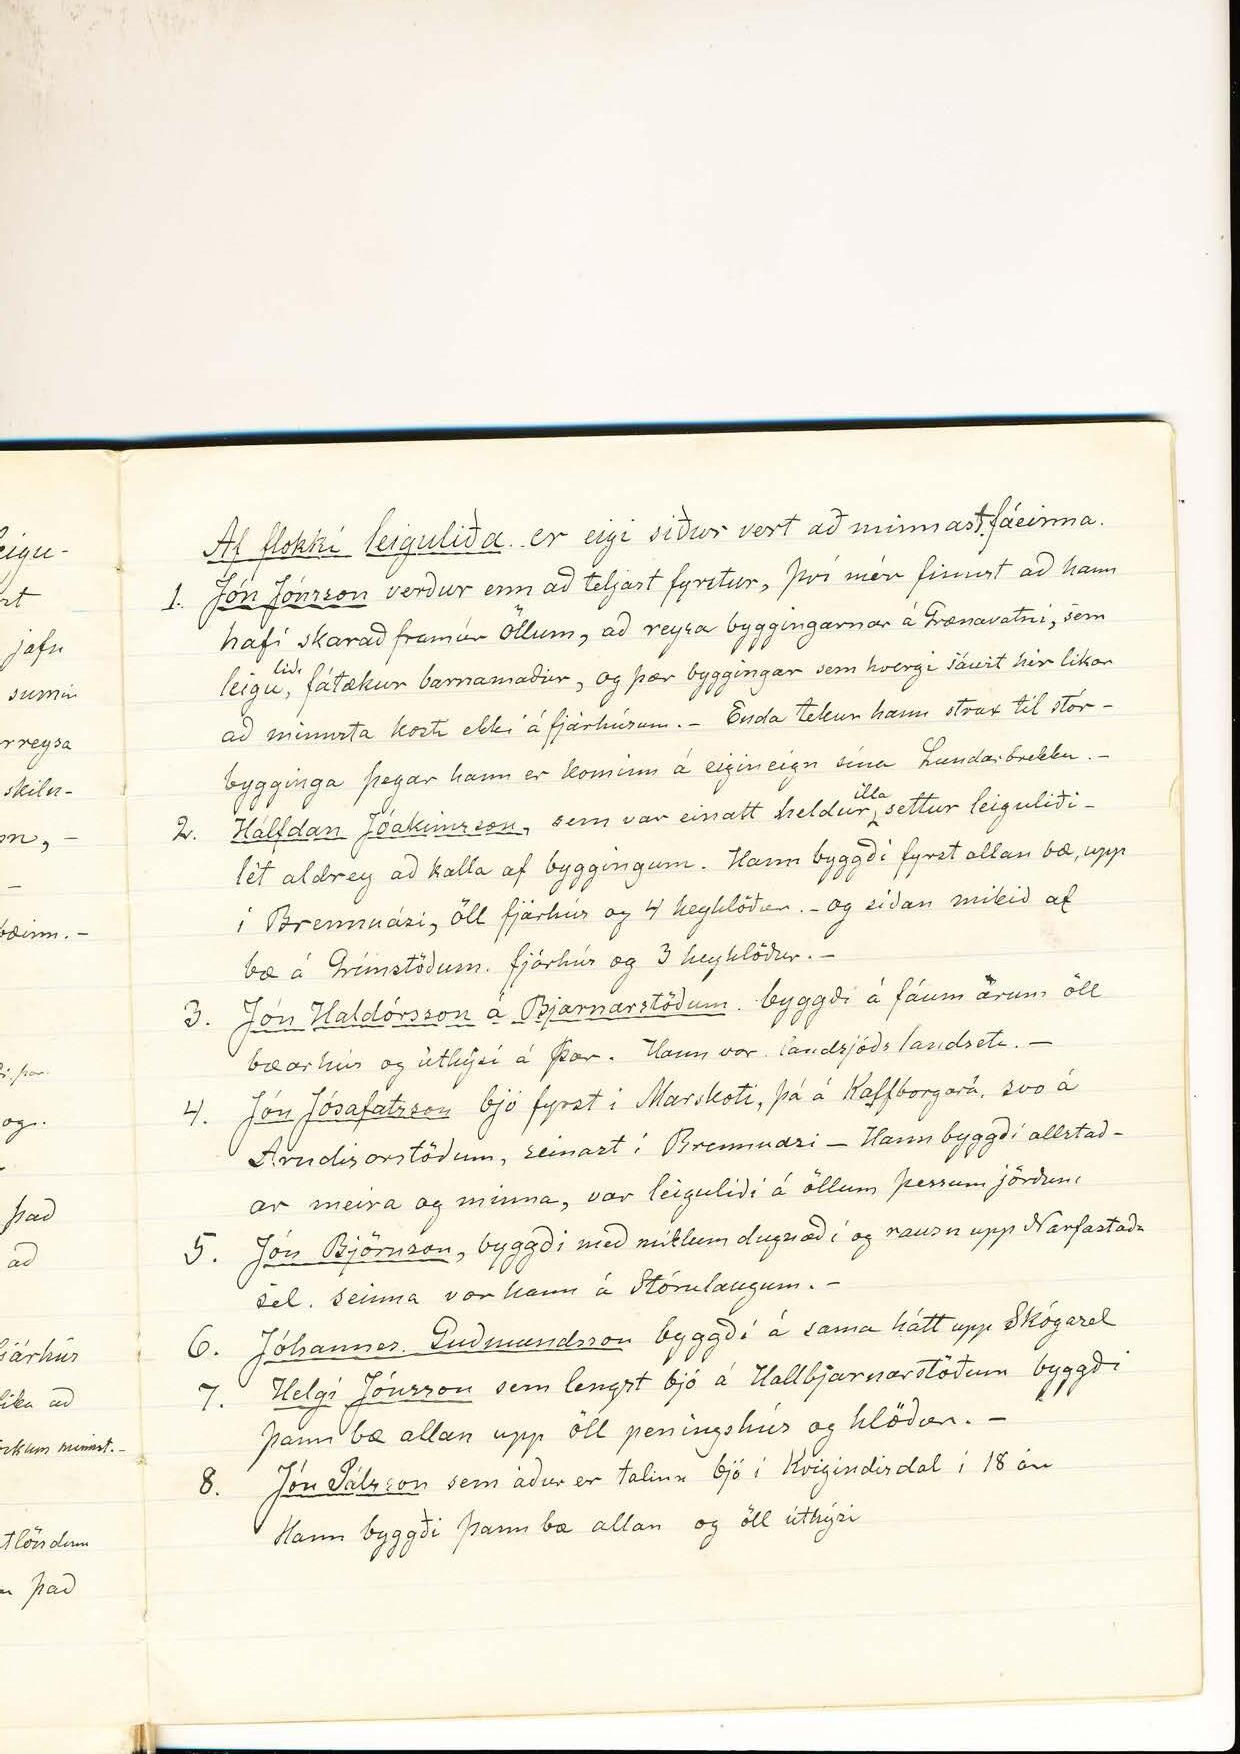 Af flokki leiguliða er eigi siður vert að minnast fáeinna.
1. Jón Jónsson verður enn að teljast fyrstur, því mér finnst að hann
hafi skarað framúr öllum, að reysa byggingarnar á Grænavatni, sem
leiguliði, fátækur barnamaður, og þær byggingar sem hvergi sáust hér likar
að minnsta kosti ekki á fjárhúsum. – Enda tekur hann strax til stór-
bygginga þegar hann er kominn á eigineign sína Lundarbrekku. –
2. Hálfdan Jóakimsson, sem var einatt heldur illa settur leiguliði –
lét aldrey að kalla af byggingum. Hann byggði fyrst allan bæ, upp
í Brennuási, öll fjárhús og 4 heyhlöður. – og síðan mikið af
bæ á Grímstöðum. fjárhús og 3 heyhlöður. –
3. Jón Haldórsson á Bjarnarstöðum. byggði á fáum árum öll
bæarhús og úthýsi á Þar. Hann var landsjóðs landseti. –
4. Jón Jósafatsson bjó fyrst i Marskoti, þá á Kalfborgará, svo á
Arndisarstöðum, seinast í Brennuási – Hann byggði allstað-
ar meira og minna, var leiguliði á öllum þessum jörðum
5. Jón Björnson, byggði með miklum dugnaði og rausn upp Narfastaða
sel. seinna var hann á Stórulaugum. –
6. Jóhannes Guðmundsson byggði á sama hátt upp Skógarsel
7. Helgi Jónsson sem lengst bjó á Hallbjarnarstöðum byggði
þann bæ allan upp öll peningshús og hlöður. –
8. Jón Pálsson sem áður er talinn bjó i Kvigindisdal i 18 ár
Hann byggði þann bæ allan og öll úthýsi
eigu-
jafn
sumir
reysa
skiln-
bæinn. –
og.
það
að
fjárhús
lika að
minnst. –
það